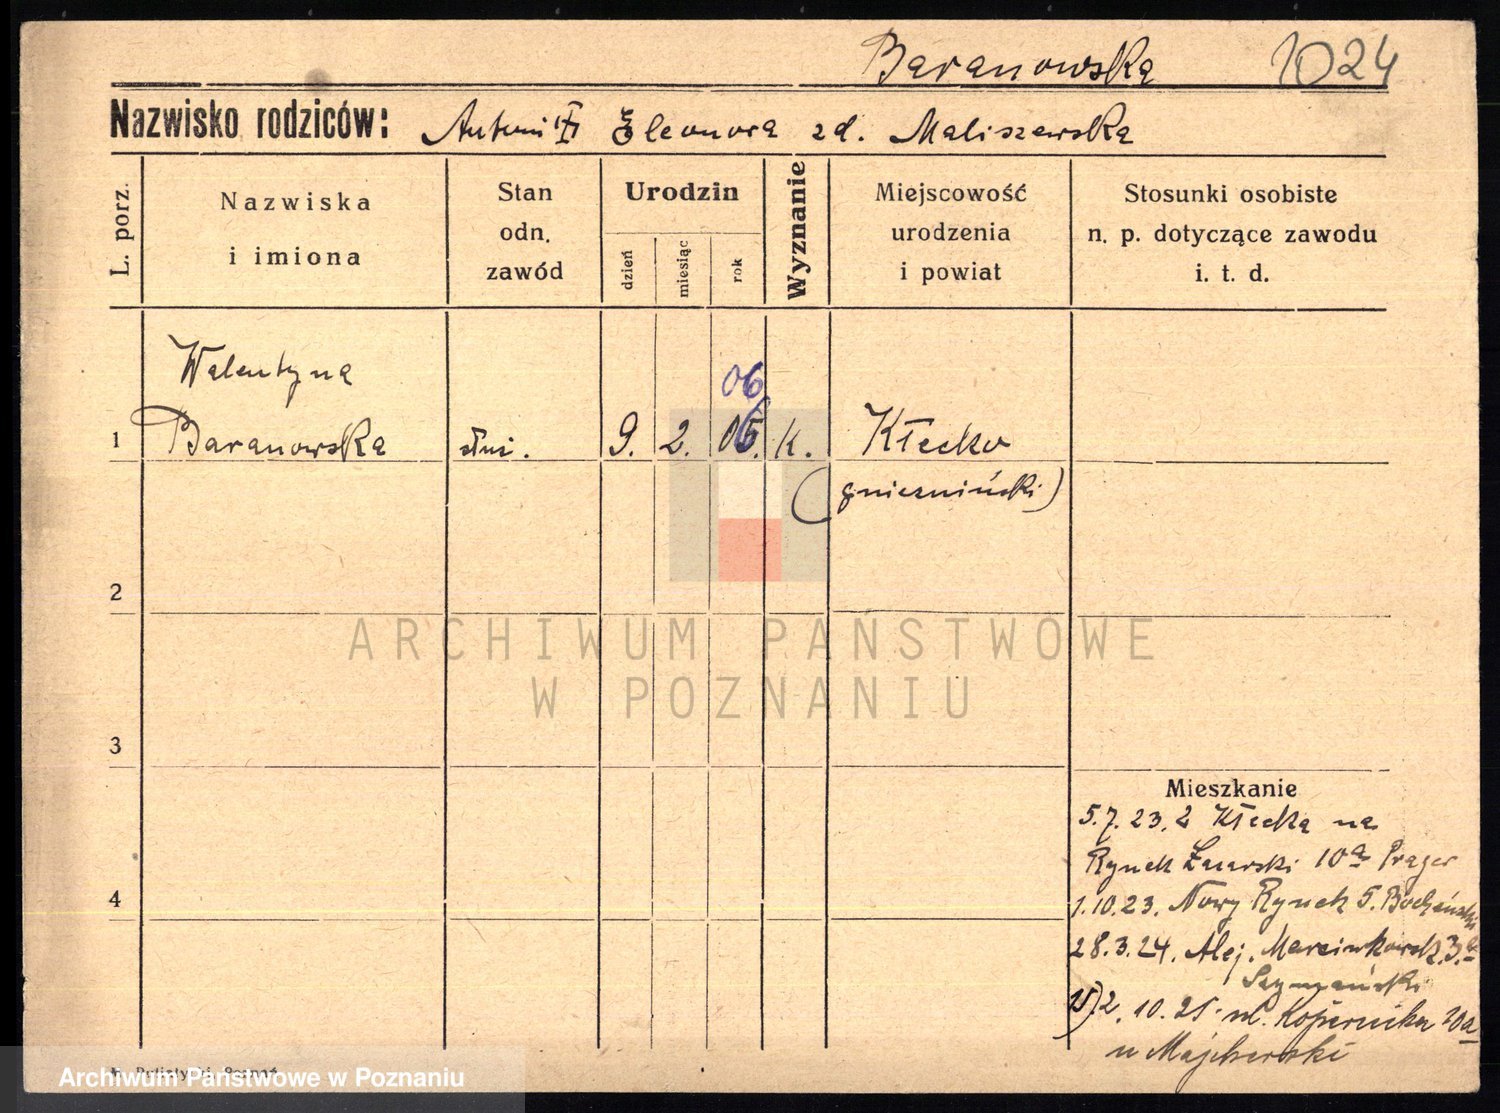 Baranowska 1024
Nazwisko rodziców: Antoni Eleonora zd. Maliszewska
L. porz.
Nazwiska
i imiona
Stan
odn.
zawód
Urodzin
dzień
miesiąc
rok
Wyznanie
Miejscowość
urodzenia
i powiat
Stosunki osobiste
n. p. dotyczące zawodu
i. t. d.
Walentyna
06
1 Baranowska służ. 9. 2. k. Kłecko
(gnieźniński)
2
ARCHIWUM PAŃSTWOWE
W POZNANIU
3
Mieszkanie
5.7.23. z Kłecka na
Rynek Łazarski 10a Prager
4
1.10.23. Nowy Rynek 5. Bocheński
28.3.24. Alej. Marcinkowsk. 3a
Szymański
2.10.25 ul. Kopernika 10a
u Majcherski
Archiwum Państwowe w Poznaniu